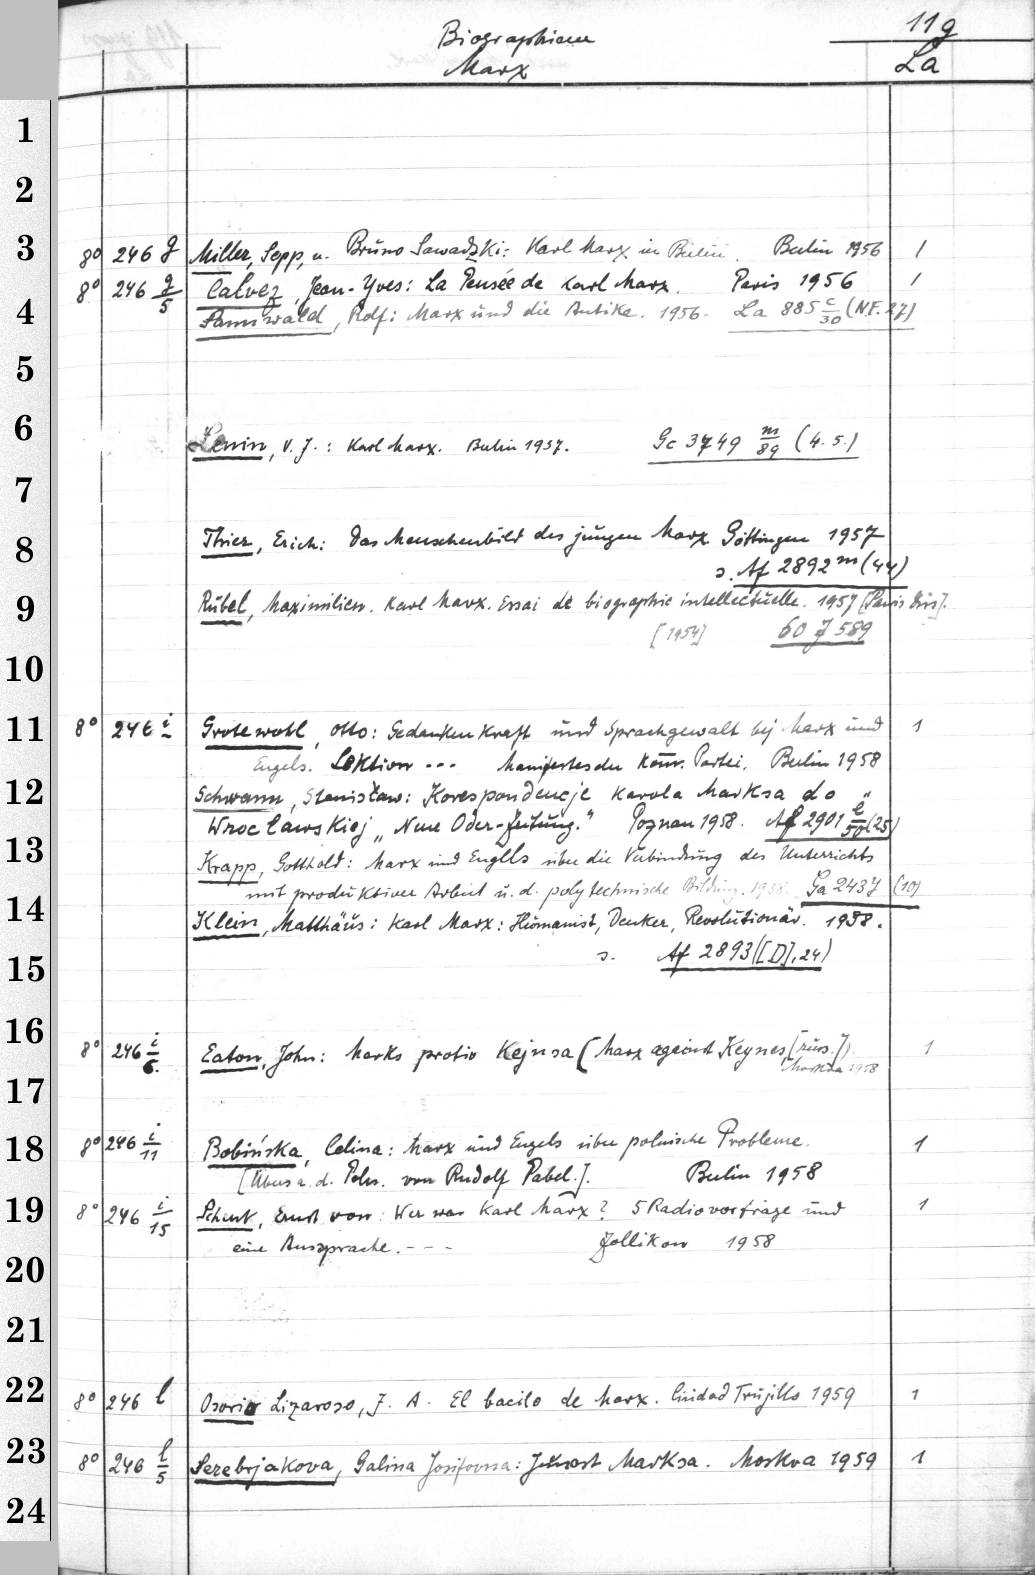 Biographieen
Marx
11g
La
1
2
3
8° 246 g Miller, Sepp, u. Bruno Sawadzki: Karl Marx in Berlin. Berlin 1956 1
8° 246 g/5 Calvez, Jean-Yves: La Pensée de Karl Marx. Paris 1956 1
4
Sannwald, Rolf: Marx und die Antike. 1956. La 885 c/30 (N.F. 27)
5
6
Lenin, V. J.: Karl Marx. Berlin 1957. Gc 3749 m/89 (4.5.)
7
8
Thier, Erich: Das Menschenbild des jungen Marx Göttingen 1957
s. Af 2892 m (44)
9
Rubel, Maximilien. Karl Marx. Essai de biographie intellectuelle. 1957 [Paris Diss].
[1954] 60 J 589
10
11
8° 246 i Grotewohl, Otto: Gedankenkraft und Sprachgewalt bei Marx und 1
Engels. Lektion --- Manifestes der Kom. Partei. Berlin 1958
12
Schwann, Stanisław: Korespondencje Karola Marksa do „
Wrocławskiej „Neue Oder-Zeitung." Poznan 1958. Af 2901 e/50 (25)
13
Krapp, Gotthold: Marx und Engels über die Verbindung des Unterrichts
mit produktiver Arbeit u. d. polytechnische Bildung. 1958. Ga 2437 (10)
14
Klein, Matthäus: Karl Marx: Humanist, Denker, Revolutionär. 1958.
15
s. Af 2893 ([D], 24)
16
8° 246 i/6 Eaton, John: Marks protiv Kejnsa (Marx against Keynes, [russ.]). 1
Moskva 1958
17
18
8° 246 i/11 Bobińska, Celina: Marx und Engels über polnische Probleme. 1
[Übers. a. d. Poln. von Rudolf Pabel.]. Berlin 1958
19
8° 246 i/15 Schenk, Ernst von: Wer war Karl Marx? 5 Radiovorträge und 1
eine Aussprache. --- Zollikon 1958
20
21
22
8° 246 l Osorio Lizaroso, J. A. El bacilo de Marx. Ciudad Trujillo 1959 1
23
8° 246 l/5 Serebrjakova, Galina Josifovna: Junost Marksa. Moskva 1959 1
24